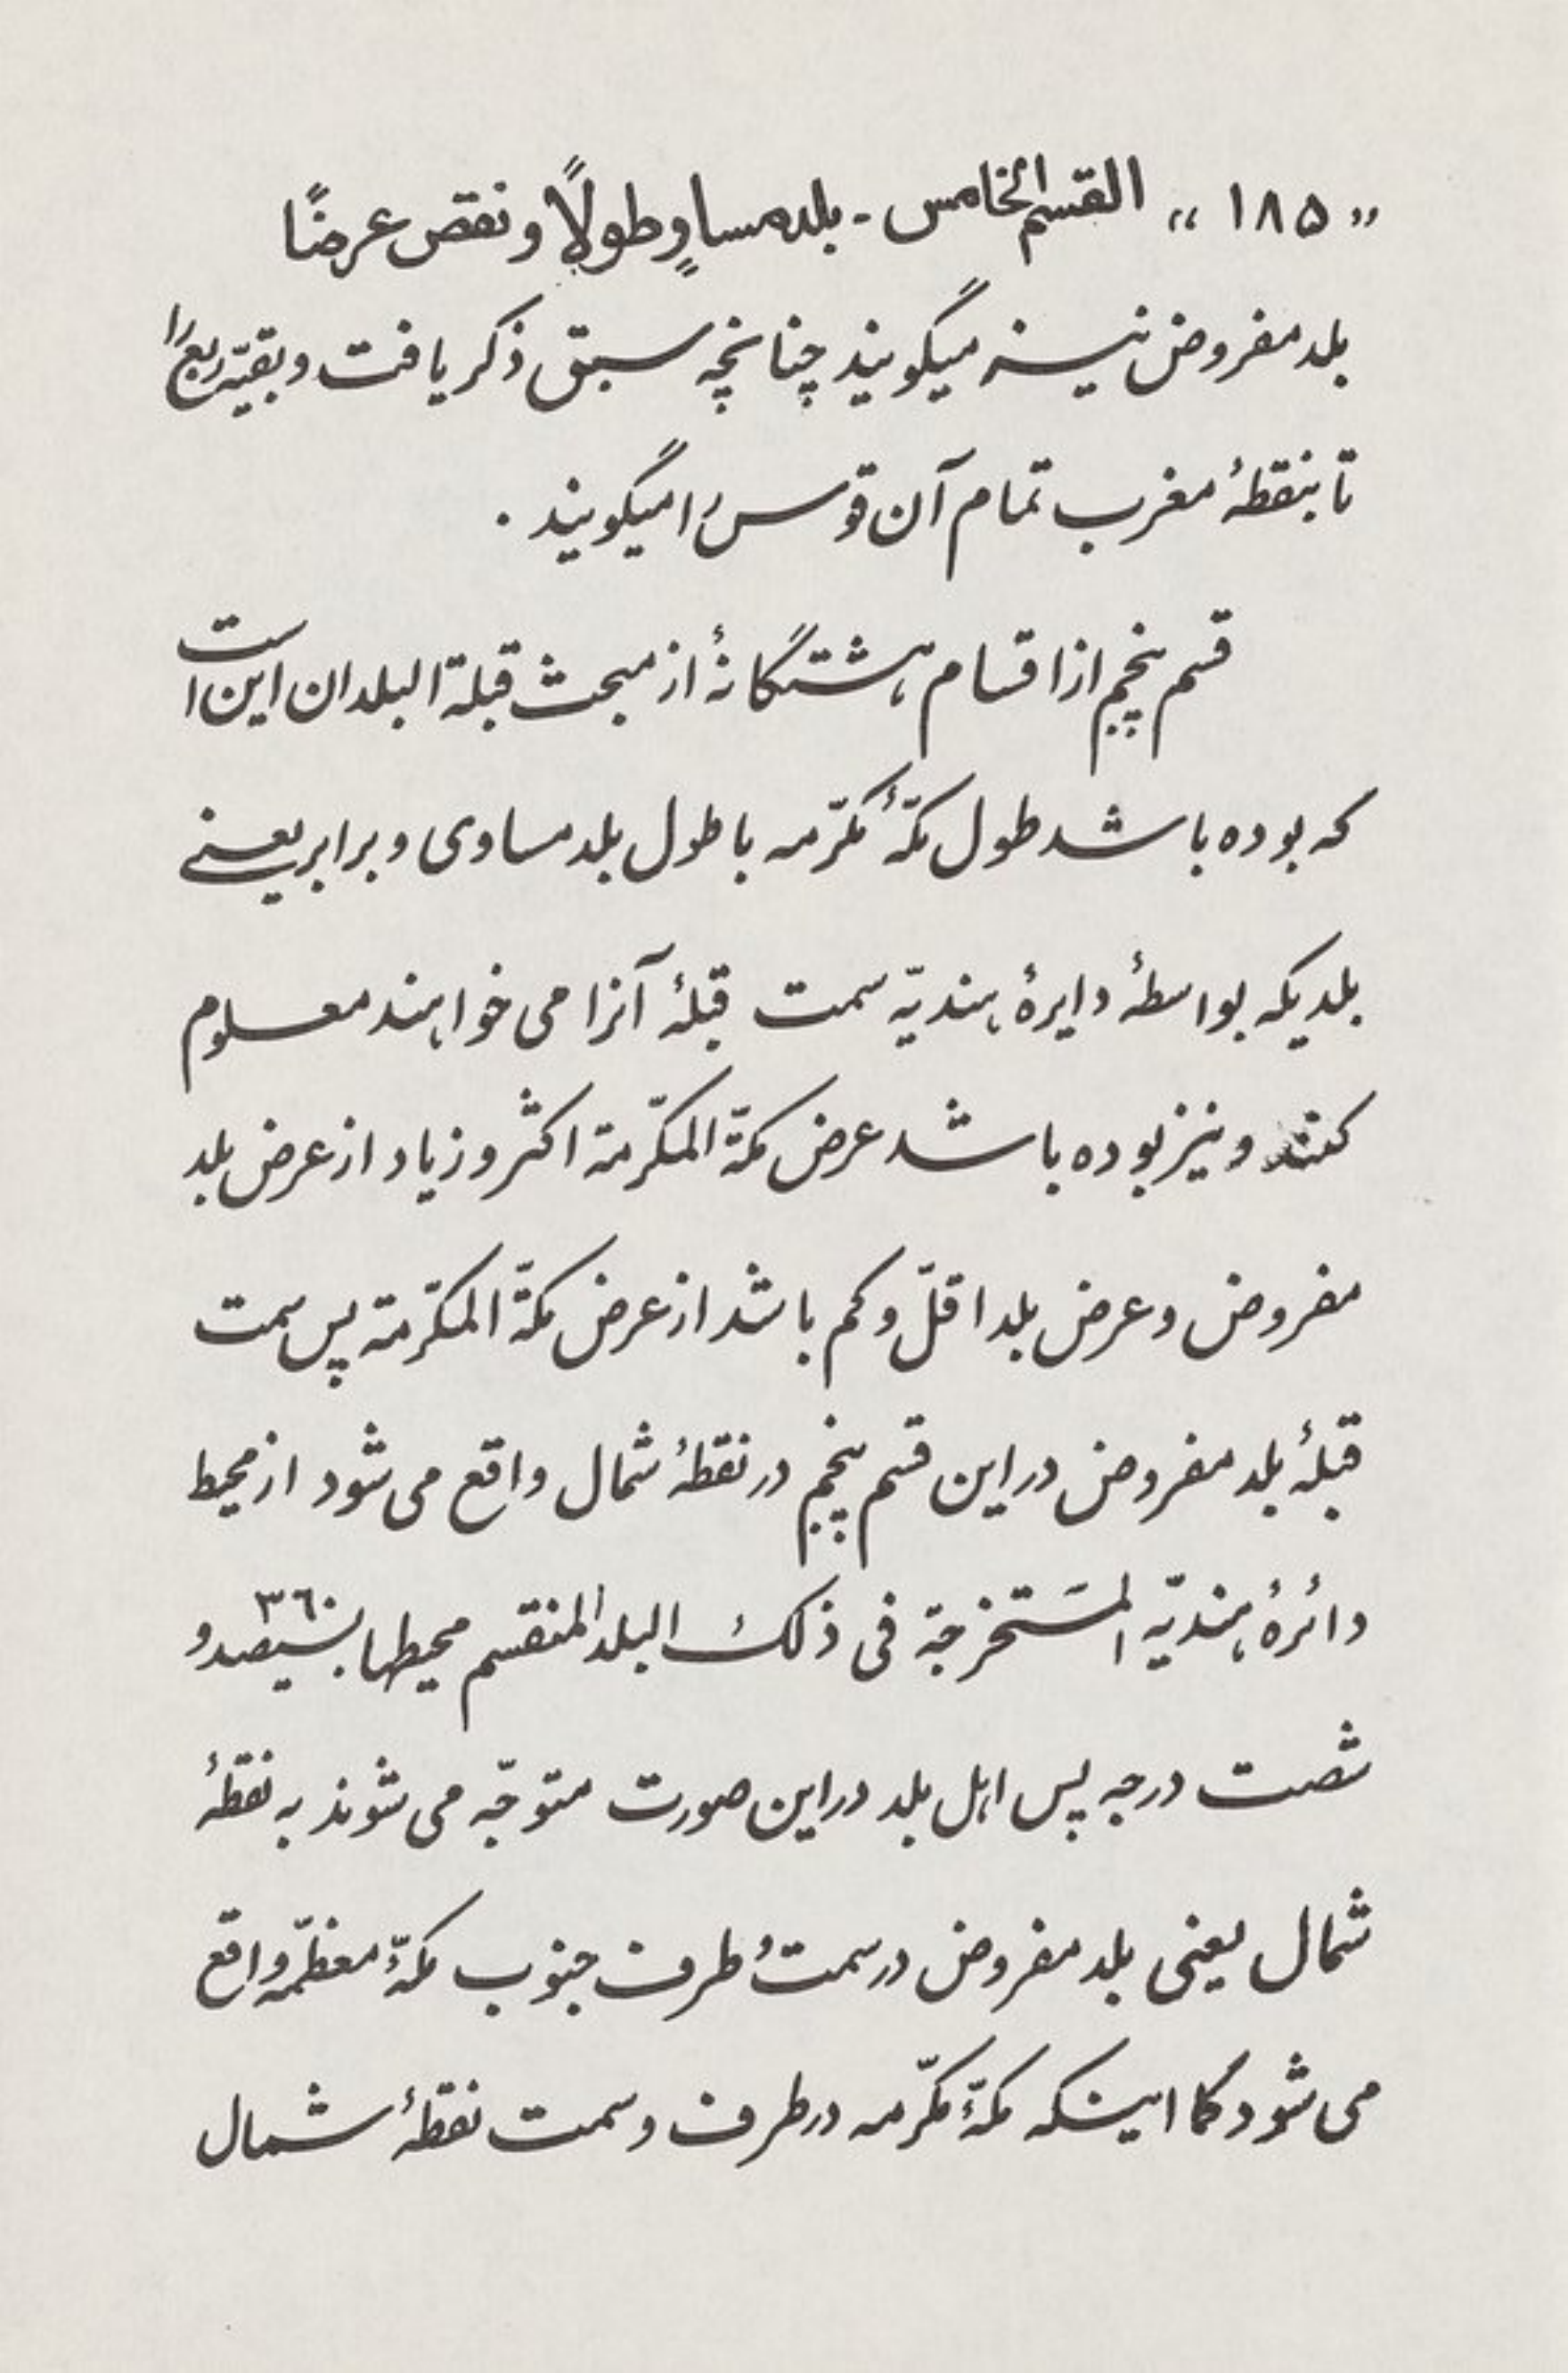 « ۱۸۵ » القسم الخامس - بلد مساوٍ طولاً و نقص عرضًا
بلد مفروض نیز میگویند چنانچه سبق ذکر یافت و بقیّه ربع را
تا بنقطهٔ مغرب تمام آن قوس را میگویند .
قسم پنجم از اقسام هشتگانهٔ از مبحث قبلة البلدان این است
که بوده باشد طول مکّهٔ مکرّمه با طول بلد مساوی و برابر یعنی
بلدیکه بواسطهٔ دایرهٔ هندیّه سمت قبلهٔ آنرا می خواهند معلوم
کنند و نیز بوده باشد عرض مکّة المکرّمة اکثر و زیاد از عرض بلد
مفروض و عرض بلد اقلّ و کم باشد از عرض مکّة المکرّمة پس سمت
قبلهٔ بلد مفروض در این قسم پنجم در نقطهٔ شمال واقع می شود از محیط
دائرهٔ هندیّه المستخرجة فی ذلک البلد المنقسم محیطها بسیصد و ۳٦۰
شصت درجه پس اهل بلد در این صورت متوجّه می شوند به نقطهٔ
شمال یعنی بلد مفروض در سمت و طرف جنوب مکّهٔ معظّمه واقع
می شود کما اینکه مکّهٔ مکرّمه در طرف و سمت نقطهٔ شمال